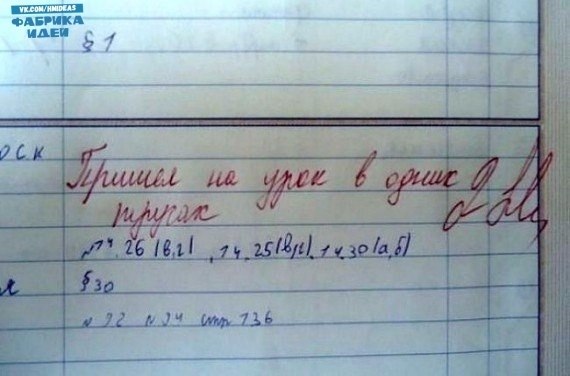 VK.COM/HMIDEAS
ФАБРИКА
ИДЕЙ
§ 1
оск
Пришел на урок в одних
трусах
№14.26(в,г), 14.25(в,г), 14.30(а,б)
я
§ 30
№ 92 № 94 стр 136